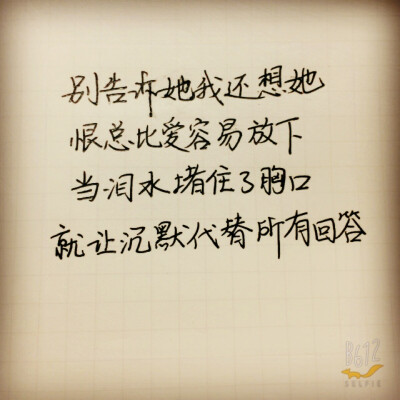 别告诉她我还想她
恨总比爱容易放下
当泪水堵住了胸口
就让沉默代替所有回答
B612
SELFIE